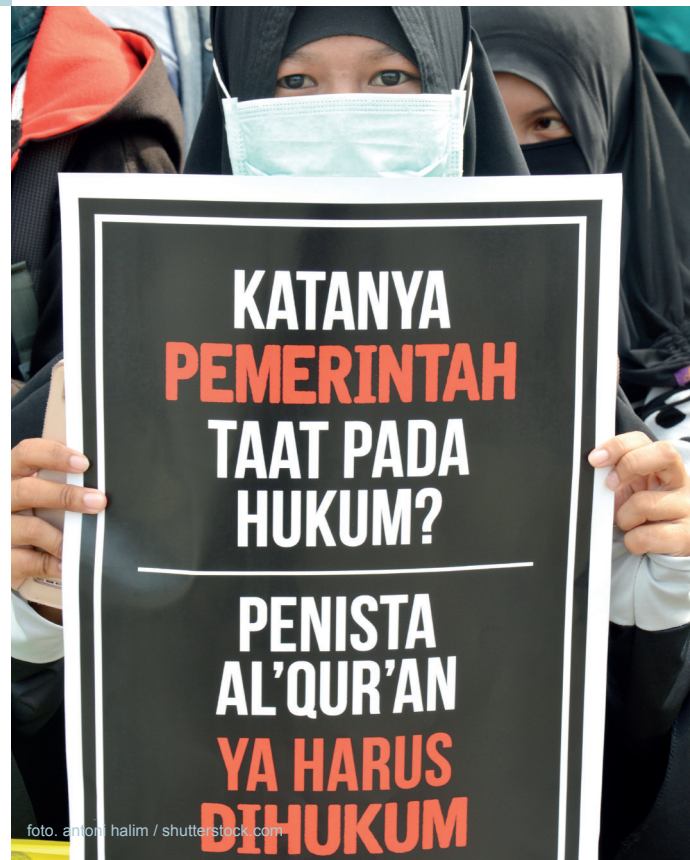 KATANYA
PEMERINTAH
TAAT PADA
HUKUM?
PENISTA
AL'QUR'AN
YA HARUS
DIHUKUM
foto. antoni halim / shutterstock.com